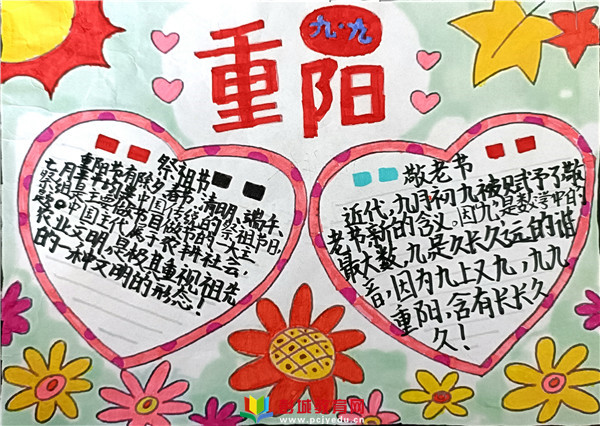 九·九
重阳
祭祖节
重阳节有除夕、春节、清明、端午、
七月半的类中国传统的祭祖节日,
祭祖是主要做节日做节的三大主
题。中国古代属于农耕社会,
农业文明,是极其重视祖先
的一种文明的形态!
敬老节
近代,九月初九被赋予了敬
老节新的含义。因九,是数字中的
最大数,九是久长久远的谐
音,因为九上又九,九九
重阳,含有长长久
久!
教育网
www.pcjyedu.cn